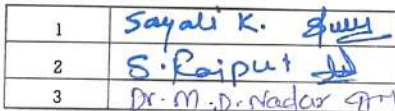 1 Sayali K.
2 S. Rajput
3 Dr. M. D. Nadar